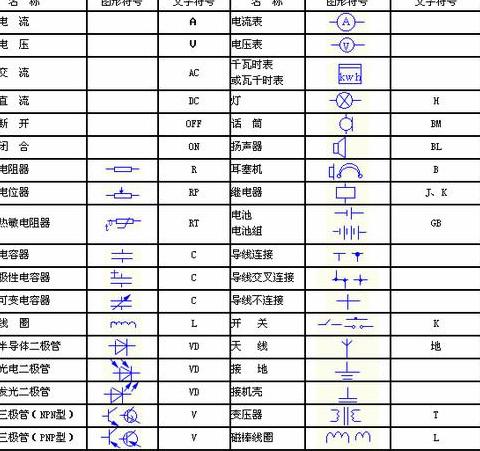 名 称 图形符号 文字符号 名 称 图形符号 文字符号
电 流 A 电流表 A
电 压 V 电压表 V
交 流 AC 千瓦时表
或瓦千时表 kwh
直 流 DC 灯 H
断 开 OFF 话 筒 BM
闭 合 ON 扬声器 BL
电阻器 R 耳塞机 B
电位器 RP 继电器 J、K
热敏电阻器 t° RT 电池
电池组 GB
电容器 C 导线连接
极性电容器 C 导线交叉连接
可变电容器 C 导线不连接
线 圈 L 开 关 K
半导体二极管 VD 天 线 地
光电二极管 VD 接 地
发光二极管 VD 接机壳
三极管(NPN型) V 变压器 T
三极管(PNP型) V 磁棒线圈 L